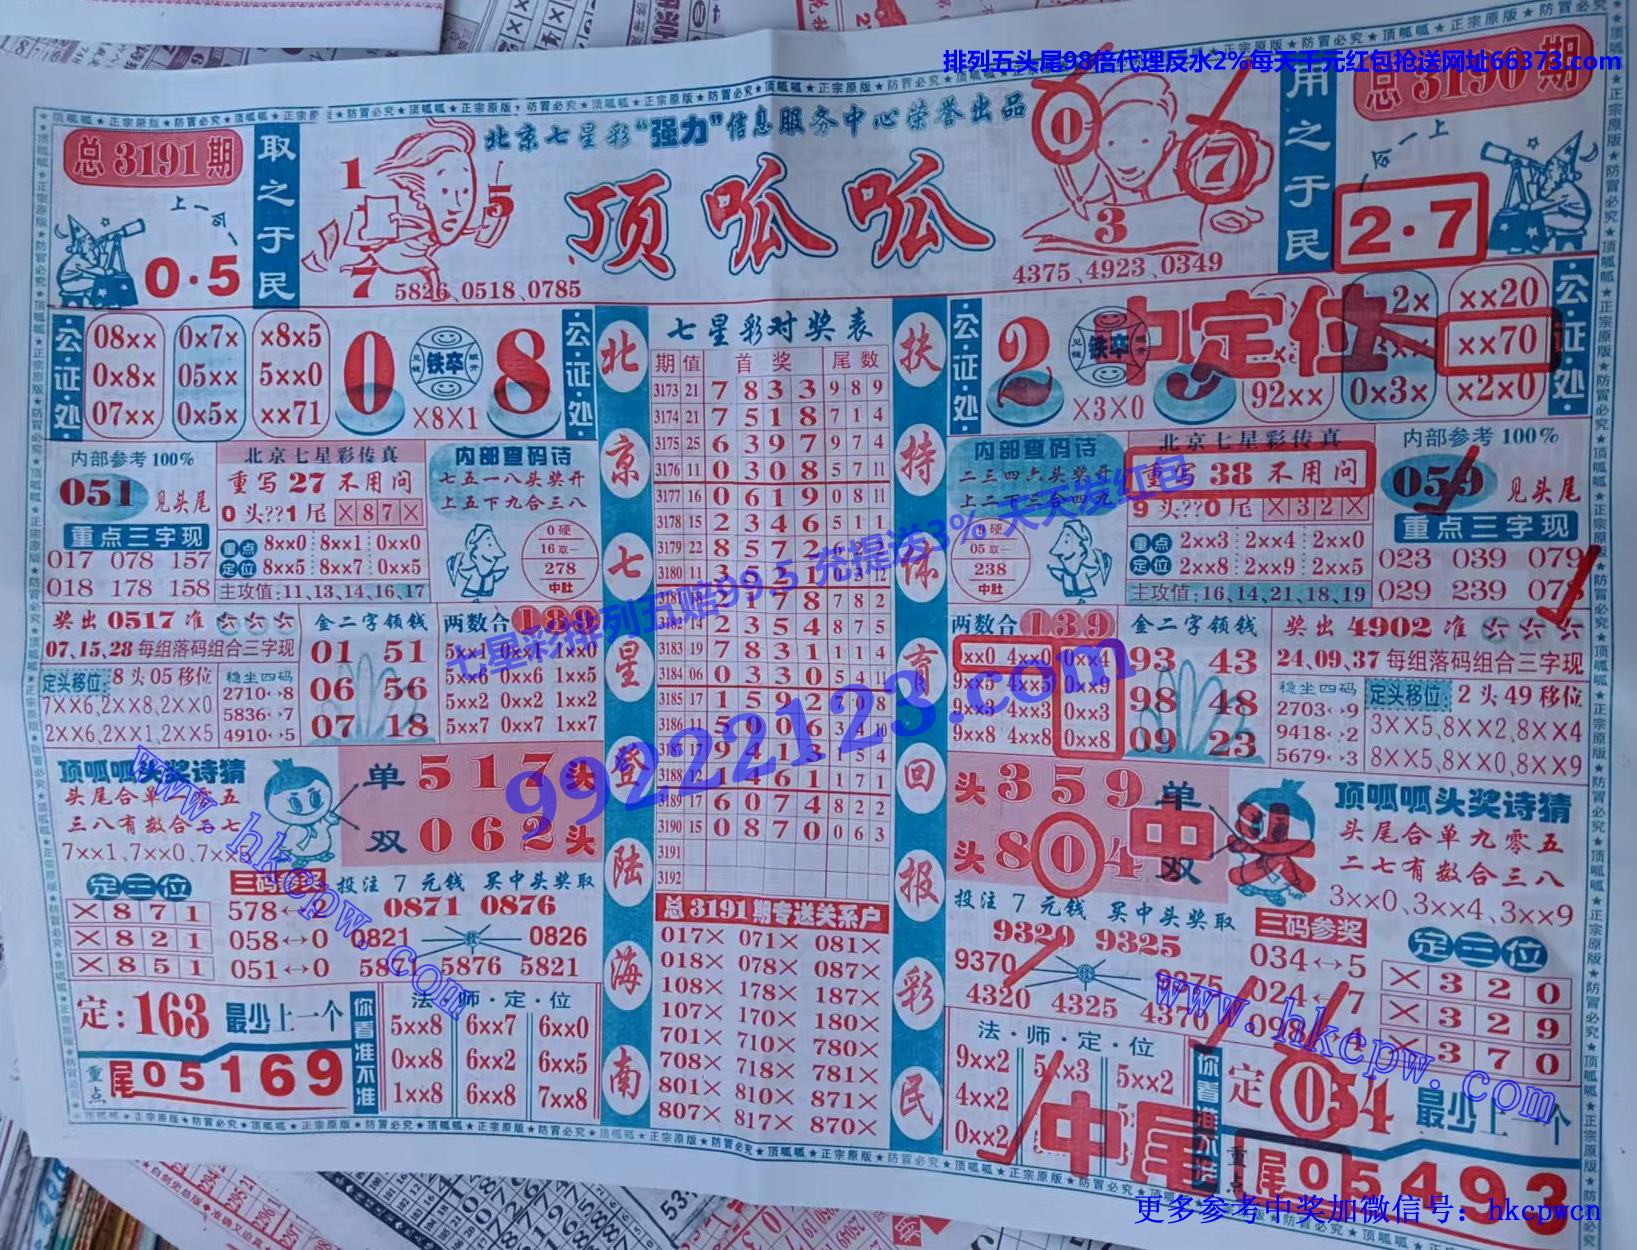 排列五头尾98倍代理反水2%每天千元红包抢送网址66373.com
总3191期
取之于民
上一个
0·5
1
5
7
5826、0518、0785
北京七星彩“强力”信息服务中心荣誉出品
顶呱呱
0
7
3
4375、4923、0349
用之于民
总3190期
上一个
2·7
公证处
08×× 0×7× ×8×5
0×8× 05×× 5××0
07×× 0×5× ××71
0 铁卒 8
×8×1
公证处
北京七星登陆海南
七星彩对奖表
期 值 首奖 尾数
3173 21 7 8 3 3 9 8 9
3174 21 7 5 1 8 7 1 4
3175 25 6 3 9 7 9 7 4
3176 11 0 3 0 8 5 7 11
3177 16 0 6 1 9 0 8 11
3178 15 2 3 4 6 5 1 1
3179 22 8 5 7 2
3180 11 3 5 2 1 0 3 12
3181 18 2 1 7 8 7 8 2
3182 14 2 3 5 4 8 7 5
3183 19 7 8 3 1 1 1 4
3184 06 0 3 3 0 5 4 11
3185 17 1 5 9 2 7 0 8
3186 11 5 0 0 6 3 4 10
3187 17 9 4 1 3 1 5 4
3188 12 1 4 6 1 1 7 1
3189 17 6 0 7 4 8 2 2
3190 15 0 8 7 0 0 6 3
3191
3192
总3191期专送关系户
017× 071× 081×
018× 078× 087×
108× 178× 187×
107× 170× 180×
701× 710× 780×
708× 718× 781×
801× 810× 871×
807× 817× 870×
扶持体育回报彩民
公证处
2 铁卒
×3×0
中定位
2× ××20
××70
92×× 0×3× ×2×0
公证处
内部参考100%
051 见头尾
重点三字现
017 078 157
018 178 158
北京七星彩传真
重写27不用问
0头??1尾 ×87×
重点定位
8××0 8××1 0××0
8××5 8××7 0××5
主攻值:11、13、14、16、17
内部查码诗
七五一八头奖开
上五下九合三八
0硬
16取一
278
中肚
奖出0517准
07、15、28每组落码组合三字现
定头移位 8头05移位
7××6、2××8、2××0
2××6、2××1、2××5
稳坐四码
2710↔8
5836↔7
4910↔5
金二字领钱
01 51
06 56
07 18
两数合189
5××1 0××1 1××0
5××6 0××6 1××5
5××2 0××2 1××2
5××7 0××7 1××7
顶呱呱头奖诗猜
头尾合单一零五
三八有数合二七
7××1、7××0、7××
单517头
双062头
定三位
×871
×821
×851
三码参奖
578↔2
058↔0
051↔0
投注7元钱 买中头奖取
0871 0876
0821 0826
5871 5876 5821
定:163 最少上一个
重点
尾05169
你看准不准
法·师·定·位
5××8 6××7 6××0
0××8 6××2 6××5
1××8 6××8 7××8
内部查码诗
二三四六头奖开
上二下三合四九
9硬
05取一
238
中肚
北京七星彩传真
重写38不用问
9头??0尾 ×32×
重点定位
2××3 2××4 2××0
2××8 2××9 2××5
主攻值:16、14、21、18、19
内部参考100%
059 见头尾
重点三字现
023 039 079
029 239 073
两数合139
××0 4××0 0××4
9××5 4××5 0××9
9××3 4××3 0××3
9××8 4××8 0××8
金二字领钱
93 43
98 48
09 23
奖出4902准
24、09、37每组落码组合三字现
稳坐四码
2703↔9
9418↔2
5679↔3
定头移位 2头49移位
3××5、8××2、8××4
8××5、8××0、8××9
头359单
头804双
中头
顶呱呱头奖诗猜
头尾合单九零五
二七有数合三八
3××0、3××4、3××9
投注7元钱 买中头奖取
9320 9325
9370 9375
4320 4325 4370
三码参奖
034↔5
024↔7
098↔4
定三位
×320
×329
×370
法·师·定·位
9××2 5××3 5××2
4××2
0××2
中尾
你看准不准
定:054 最少上一个
重点
尾05493
七星彩排列五赔99.5 充提送3% 天天发红包
99222123.com
www.hkcpw.com
www.hkcpw.com
更多参考中奖加微信号: hkcpwcn